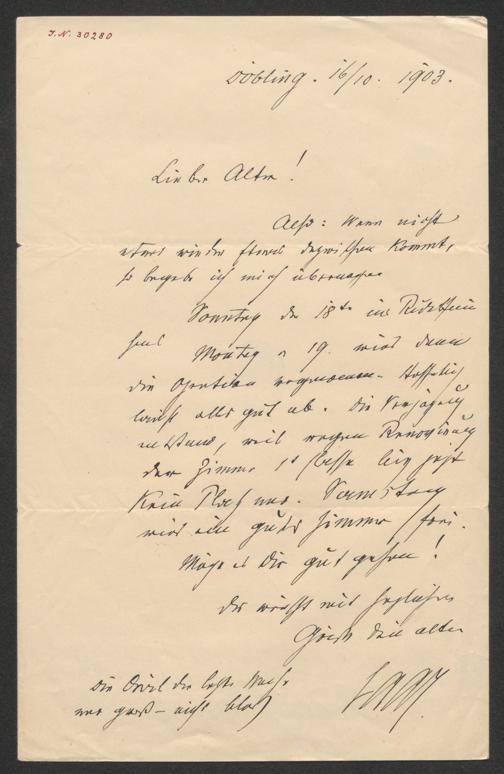 I. N. 30280
Döbling. 16/10. 1903.
Lieber Alter!
Also: Wenn nicht
etwas wieder dazwischen kommt,
so begebe ich mich übermorgen
Sonntag den 18ten ins Rudolfiner
haus Montag 19. wird dann
die Operation vorgenommen. Hoffentlich
lauft alles gut ab. Die Verzögerung
entstand, weil wegen Renovierung
der Zimmer 1r Classe bis jetzt
kein Platz war. Samstag
wird ein gutes Zimmer frei.
Möge es Dir gut gehen!
Das wünscht mit herzlichem
Gruß Dein alter
Die die letzte Woche
war groß – nicht bloß